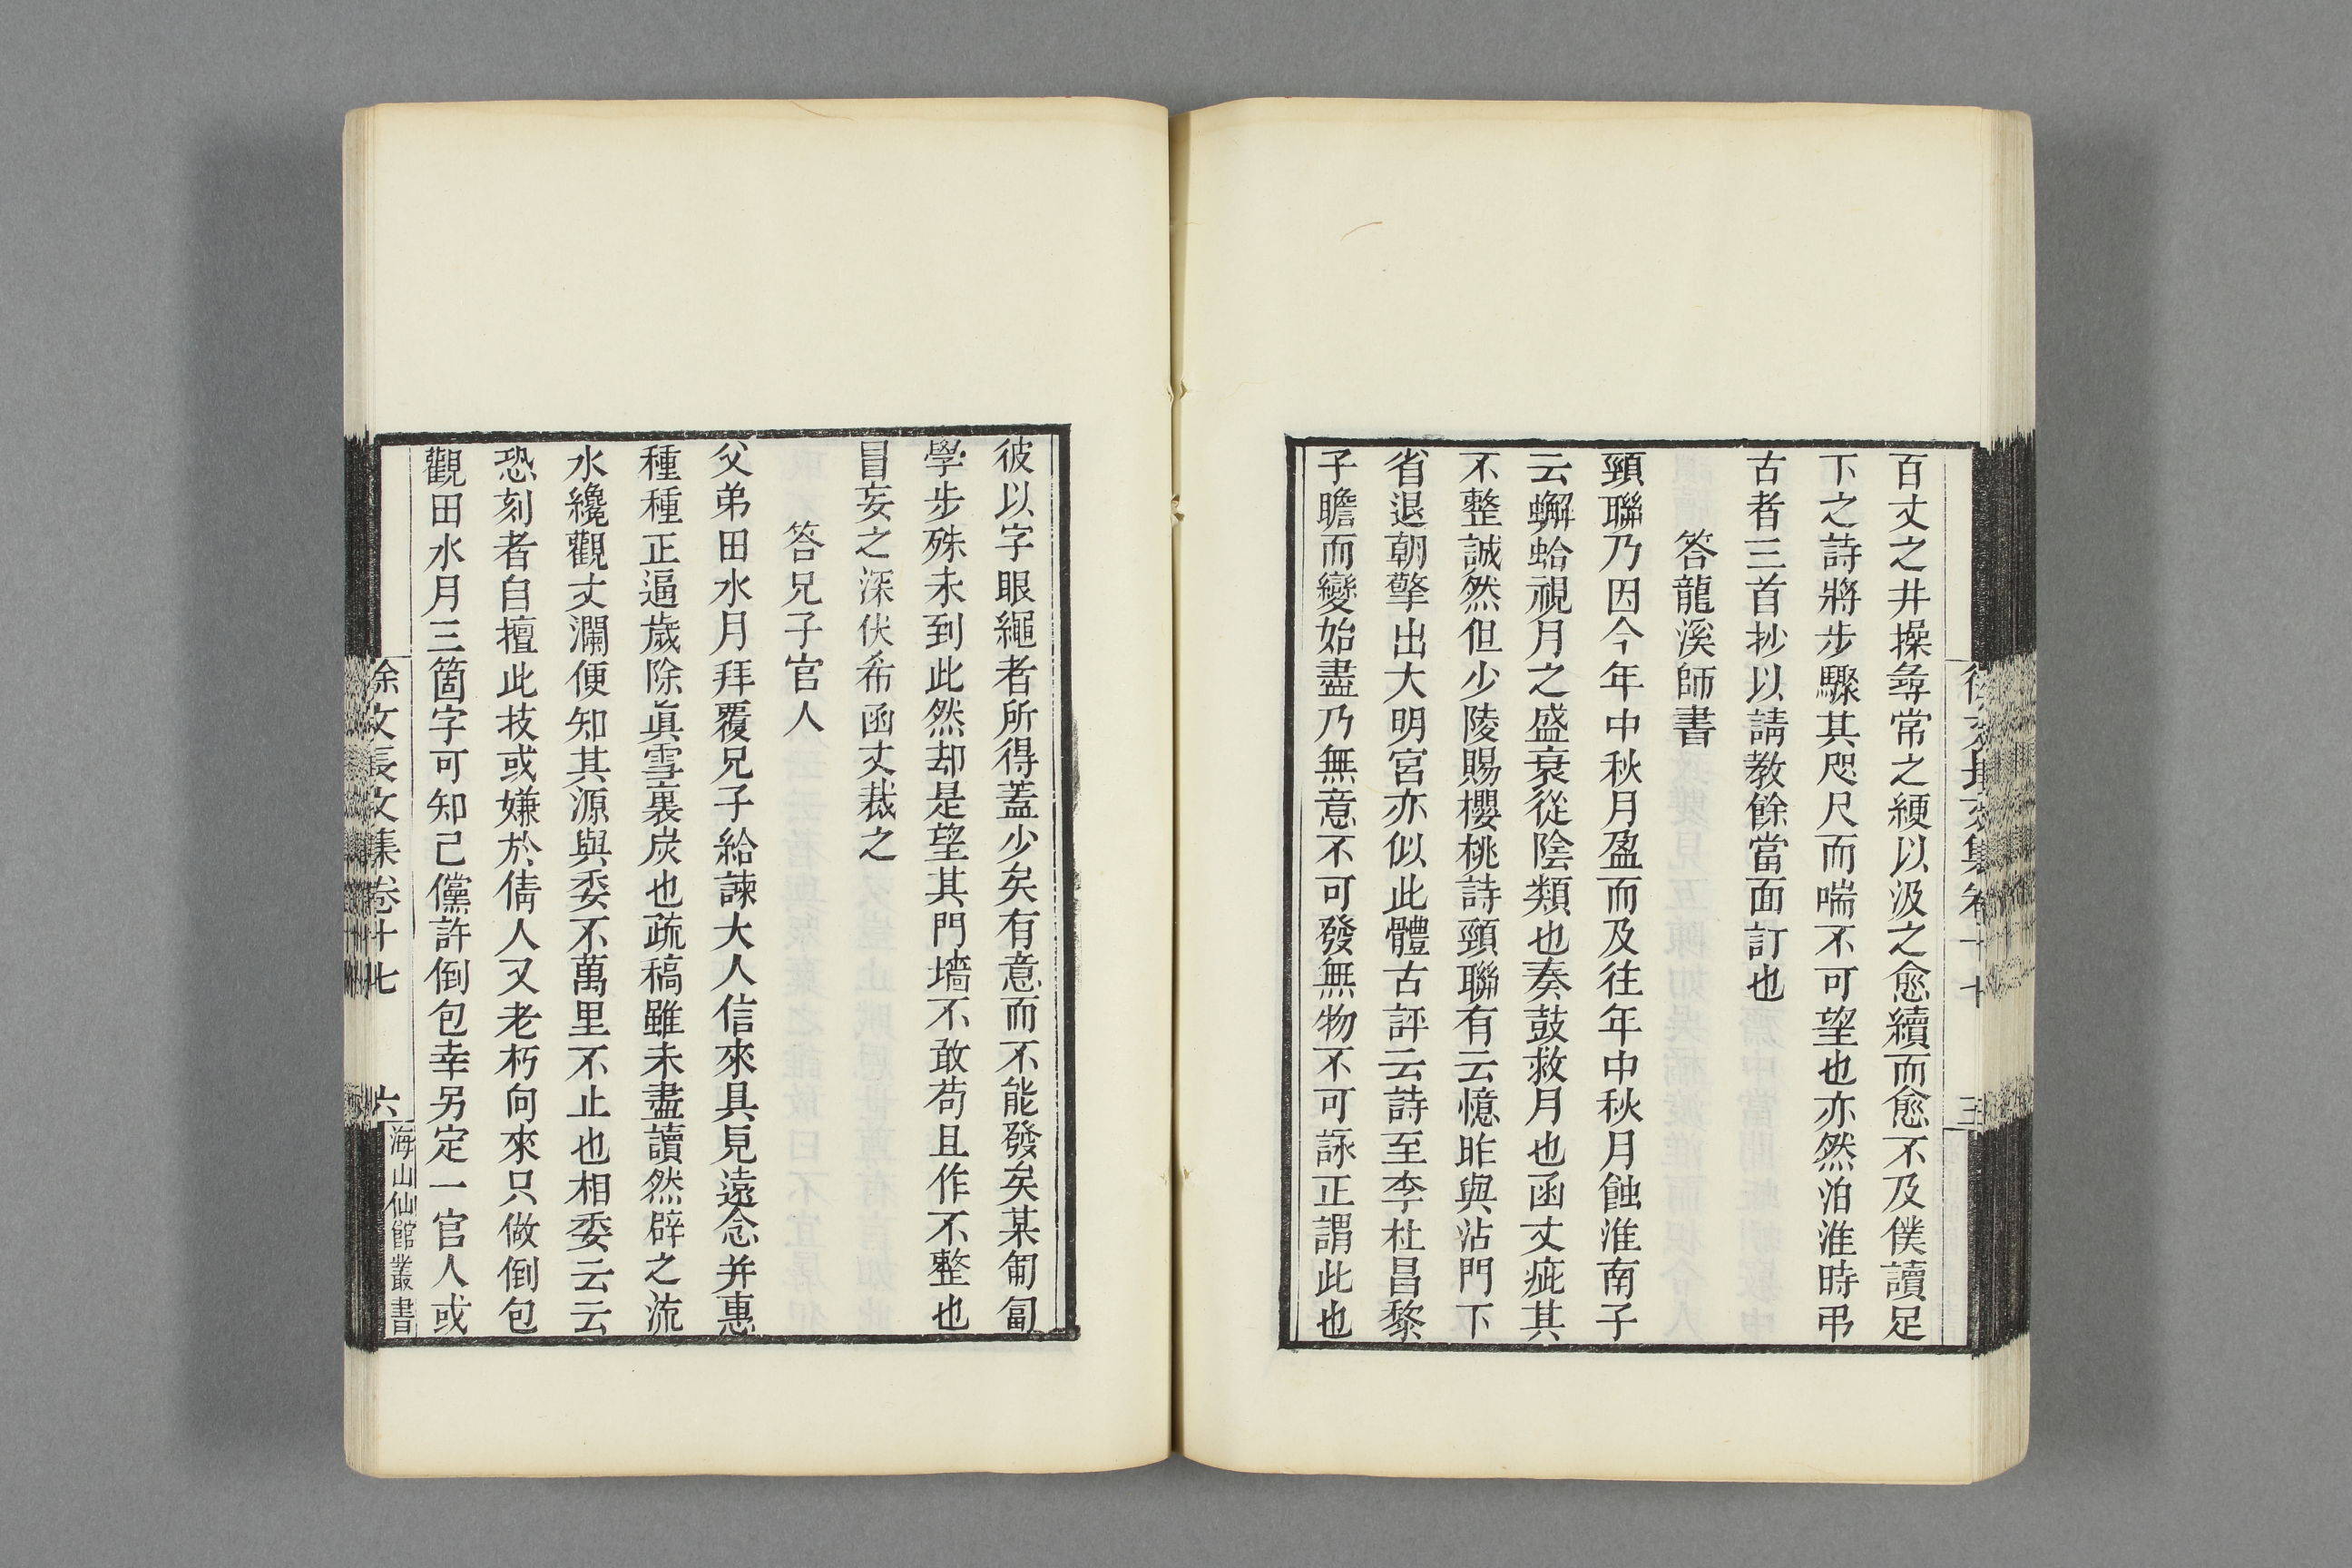 百丈之井操尋常之綆以汲之愈續而愈不及僕讀足
下之詩將步驟其咫尺而喘不可望也亦然泊淮時弔
古者三首抄以請教餘當面訂也
答龍溪師書
頸聯乃因今年中秋月盈而及往年中秋月蝕淮南子
云蠏蛤視月之盛衰從陰類也奏鼓救月也函丈疵其
不整誠然但少陵賜櫻桃詩頸聯有云憶昨與沾門下
省退朝擎出大明宮亦似此體古評云詩至李杜昌黎
子瞻而變始盡乃無意不可發無物不可詠正謂此也
彼以字眼繩者所得蓋少矣有意而不能發矣某匍匐
學步殊未到此然却是望其門墻不敢苟且作不整也
冒妄之深伏希函丈裁之
答兄子官人
父弟田水月拜覆兄子給諫大人信來具見遠念并惠
種種正逼歲除眞雪裏炭也疏稿雖未盡讀然辟之流
水纔觀丈瀾便知其源與委不萬里不止也相委云云
恐刻者自擅此技或嫌於倩人又老朽向來只做倒包
觀田水月三箇字可知己儻許倒包幸另定一官人或
徐文長文集卷十七
六
海山仙館叢書